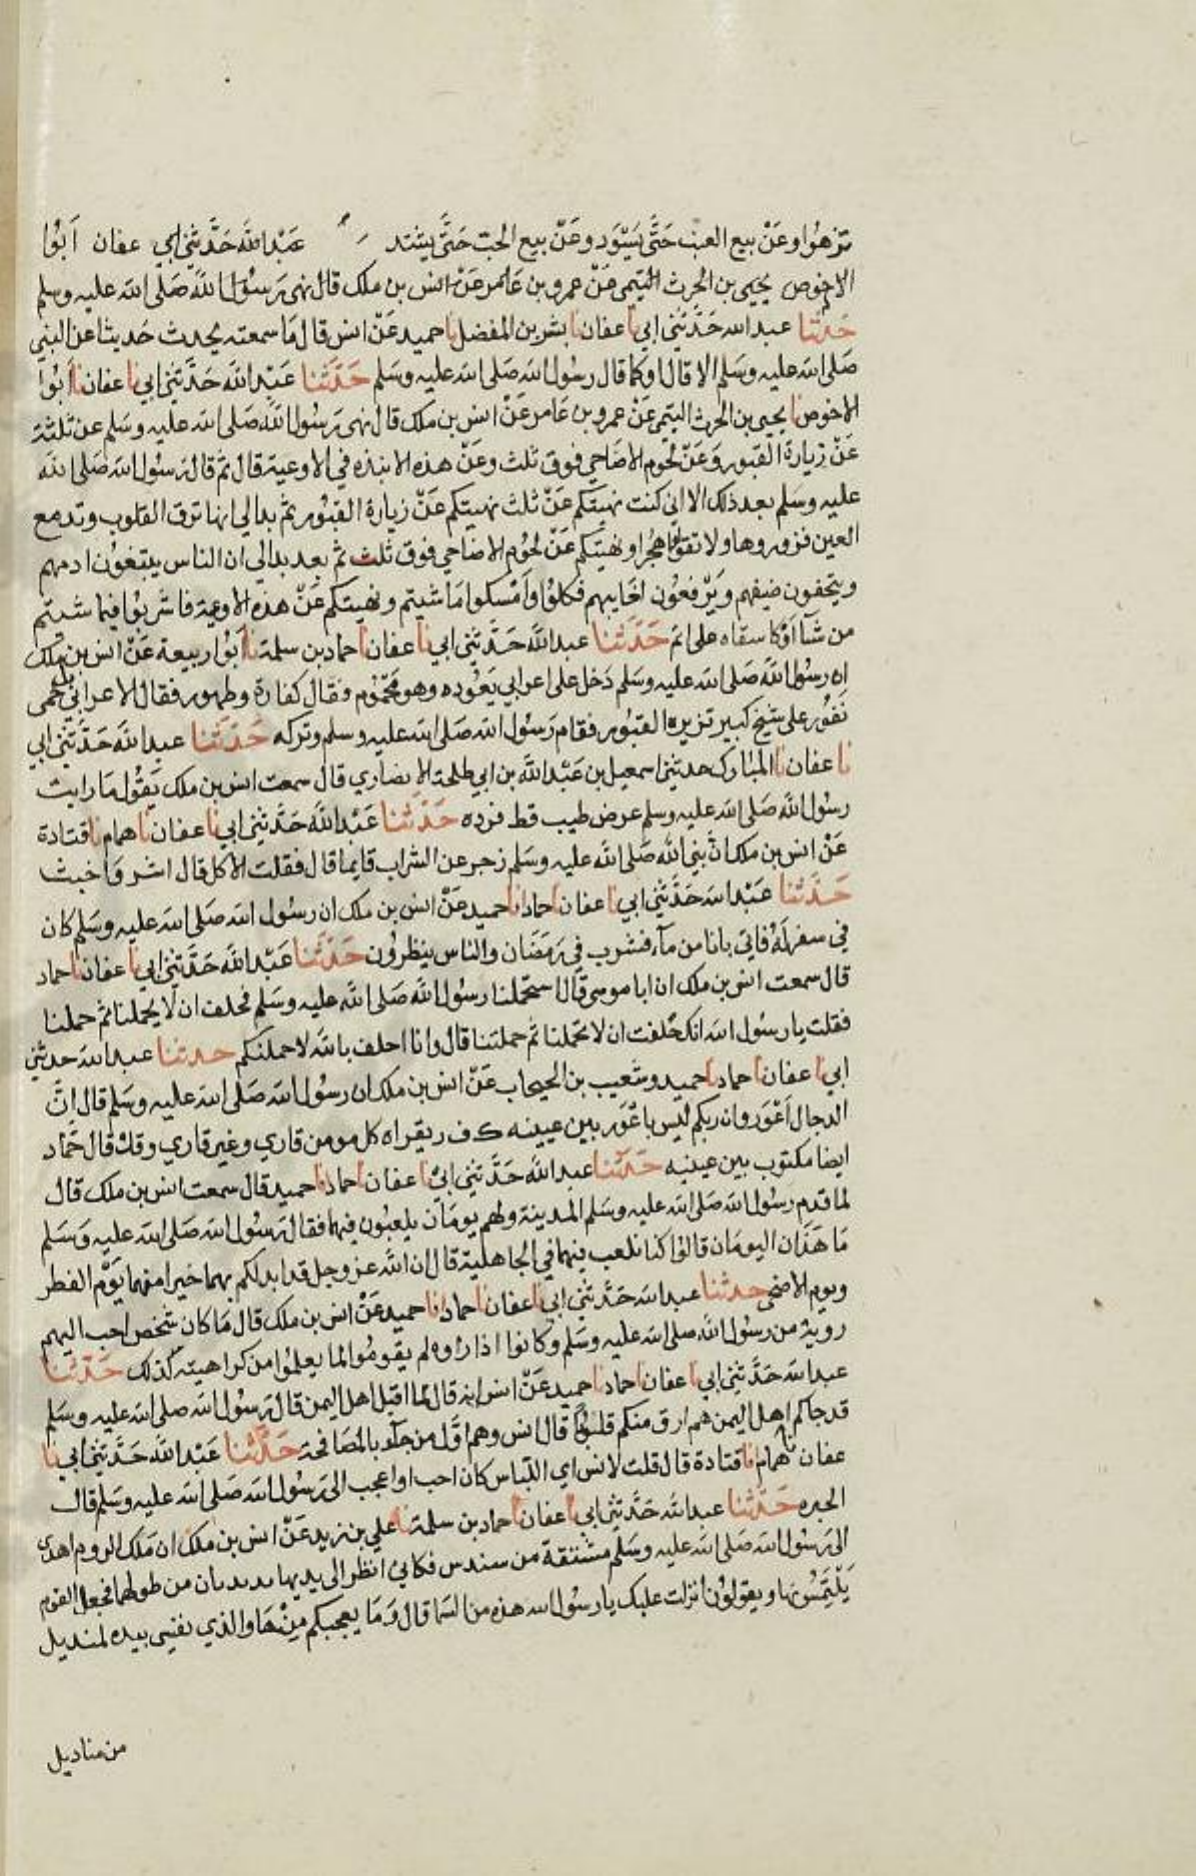 تزهوا وعن بيع العنب حتى يسود وعن بيع الحب حتى يشتد عبد الله حدثني ابي عفان ابوا
الاخوص يحيى بن الحرث التيمى عن عمرو بن عامر عن انس بن ملك قال نهى رسول الله صلى الله عليه وسلم
حدثنا عبد الله حدثني ابي نا عفان نا بشر بن المفضل نا حميد عن انس قال ما سمعته يحدث حديثا عن النبي
صلى الله عليه وسلم الا قال او كما قال رسول الله صلى الله عليه وسلم حدثنا عبد الله حدثني ابي نا عفان نا ابوا
الاخوص نا يحيى بن الحرث التيمى عن عمرو بن عامر عن انس بن ملك قال نهى رسول الله صلى الله عليه وسلم عن ثلثة
عن زيارة القبور وعن لحوم الاضاحي فوق ثلث وعن هذه الانبذه في الاوعية قال ثم قال رسول الله صلى الله
عليه وسلم بعد ذلك الا اني كنت نهيتكم عن ثلث نهيتكم عن زيارة القبور ثم بدا لي انها ترق القلوب وتدمع
العين فزوروها ولا تقولوا هجرا ونهيتكم عن لحوم الاضاحي فوق ثلث ثم بعد بدا لي ان الناس يبتغون ادمهم
ويتحفون ضيفهم ويرفعون لغايبهم فكلوا وامسكوا ما شيتم ونهيتكم عن هذه الاوعية فاشربوا فيما شيتم
من شآ اوكا سقاه على اثم حدثنا عبد الله حدثني ابي نا عفان نا حماد بن سلمة نا ابوا ربيعة عن انس بن ملك
ان رسول الله صلى الله عليه وسلم دخل على اعرابي يعوده وهو محموم فقال كفارة وطهور فقال الاعرابي بل حمى
تفور على شيخ كبير تزيره القبور فقام رسول الله صلى الله عليه وسلم وتركه حدثنا عبد الله حدثني ابي
نا عفان نا المبارك حدثني اسمعيل بن عبد الله بن ابي طلحة الانصاري قال سمعت انس بن ملك يقول ما رايت
رسول الله صلى الله عليه وسلم عرض طيب قط فرده حدثنا عبد الله حدثني ابي نا عفان نا همام نا قتادة
عن انس بن ملك ان نبي الله صلى الله عليه وسلم زجر عن الشراب قايما قال فقلت الاكل قال اشر واخبث
حدثنا عبد الله حدثني ابي نا عفان نا حماد انا حميد عن انس بن ملك ان رسول الله صلى الله عليه وسلم كان
في سفر له فاتى بانا من مآء فشرب في رمضان والناس ينظرون حدثنا عبد الله حدثني ابي نا عفان نا حماد
قال سمعت انس بن ملك ان ابا موسى قال استحملنا رسول الله صلى الله عليه وسلم فحلف ان لا يحملنا ثم حملنا
فقلت يا رسول الله انك حلفت ان لا تحملنا ثم حملتنا قال وانا احلف بالله لاحملنكم حدثنا عبد الله حدثني
ابي نا عفان نا حماد نا حميد وشعيب بن الحبحاب عن انس بن ملك ان رسول الله صلى الله عليه وسلم قال ان
الدجال اعور وان ربكم ليس باعور بين عينيه ك ف ر يقراه كل مومن قاري وغير قاري وقد قال حماد
ايضا مكتوب بين عينيه حدثنا عبد الله حدثني ابي نا عفان نا حماد انا حميد قال سمعت انس بن ملك قال
لما قدم رسول الله صلى الله عليه وسلم المدينة ولهم يومان يلعبون فيها فقال رسول الله صلى الله عليه وسلم
ما هذان اليومان قالوا كنا نلعب فيهما في الجاهلية قال ان الله عز وجل قد ابدلكم بهما خيرا منهما يوم الفطر
ويوم الاضحى حدثنا عبد الله حدثني ابي نا عفان نا حماد انا حميد عن انس بن ملك قال ما كان شخص احب اليهم
روية من رسول الله صلى الله عليه وسلم وكانوا اذا راوه لم يقوموا لما يعلموا من كراهيته لذلك حدثنا
عبد الله حدثني ابي نا عفان نا حماد نا حميد عن انس انه قال لما اقبل اهل اليمن قال رسول الله صلى الله عليه وسلم
قد جاكم اهل اليمن هم ارق منكم قلوبا قال انس وهم اول من جآء بالمصافحة حدثنا عبد الله حدثني ابي نا
عفان نا همام نا قتادة قال قلت لانس اي اللباس كان احب او اعجب الى رسول الله صلى الله عليه وسلم قال
الحبره حدثنا عبد الله حدثني ابي نا عفان نا حماد بن سلمة نا علي بن زيد عن انس بن ملك ان ملك الروم اهدى
الى رسول الله صلى الله عليه وسلم مستقة من سندس فكاني انظر الى يديها بديدبان من طولها فجعل القوم
يلتمسونها ويقولون انزلت عليك يا رسول الله هذه من السما قال وما يعجبكم منها والذي نفسي بيده لمنديل
من مناديل